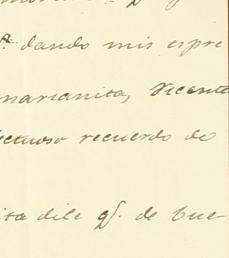 dando mis espre
marianita, Vicente
ectuoso recuerdo de
ita dile q. de bue-